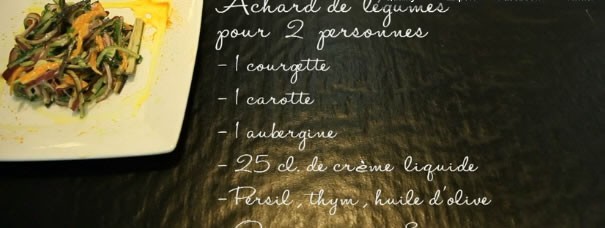 Achard de légumes
pour 2 personnes
- 1 courgette
- 1 carotte
- 1 aubergine
- 25 cl. de crème liquide
- Persil, thym, huile d'olive